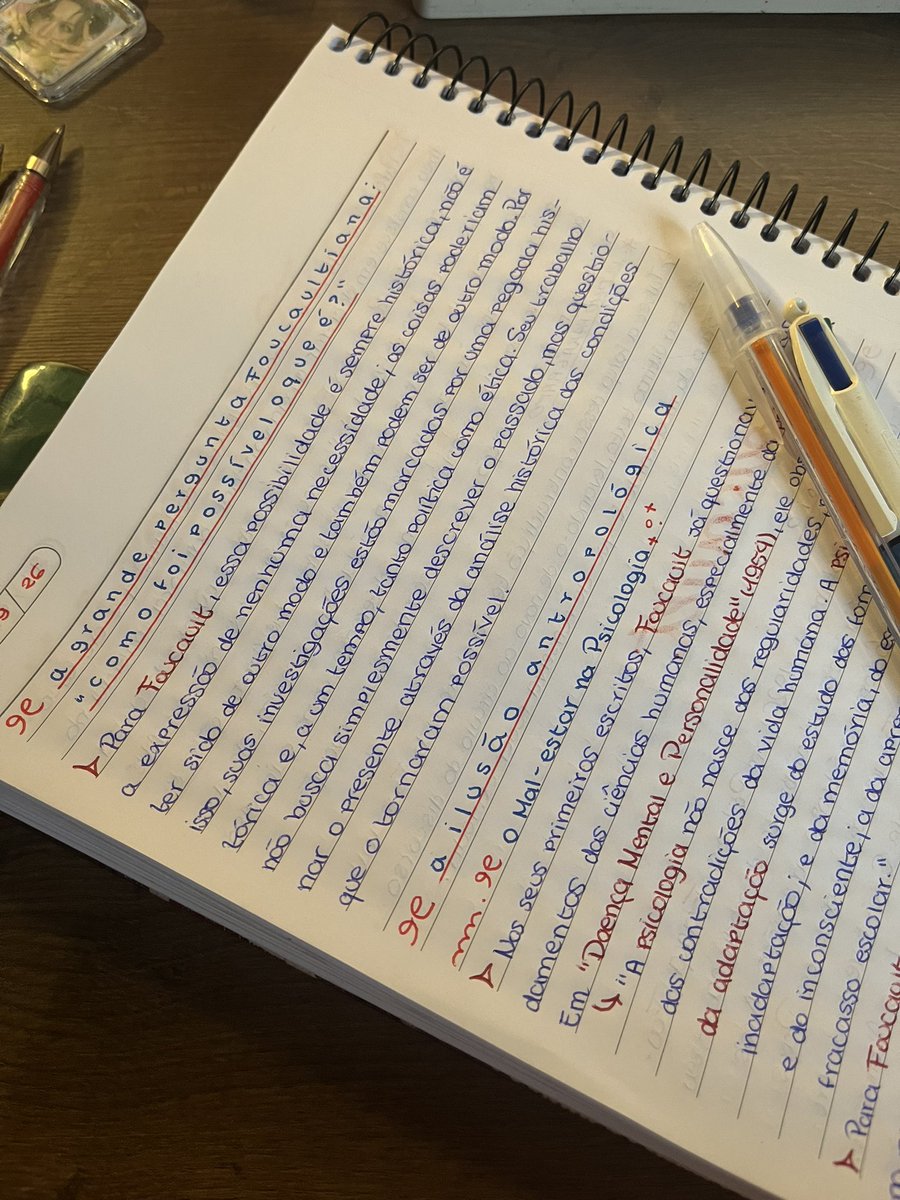 9/26
a grande pergunta Foucaultiana:
"como foi possível o que é?"
Para Foucault, essa possibilidade é sempre histórica, não é
a expressão de nenhuma necessidade; as coisas poderiam
ter sido de outro modo e também podem ser de outro modo. Por
isso, suas investigações estão marcadas por uma pegada his-
tórica e, a um tempo, tanto política como ética. Seu trabalho
não busca simplesmente descrever o passado, mas questio-
nar o presente através da análise histórica das condições
que o tornaram possível.
a ilusão antropológica
o Mal-estar na Psicologia
Nos seus primeiros escritos, Foucault já questionav
damentos das ciências humanas, especialmente da
Em "Doença Mental e Personalidade" (1954), ele
↳ "A psicologia não nasce das regularidades
das contradições da vida humana. A psi
da adaptação surge do estudo das
inadaptação; e da memória, do es
e do inconsciente; a da apre
fracasso escolar."
Para Foucault